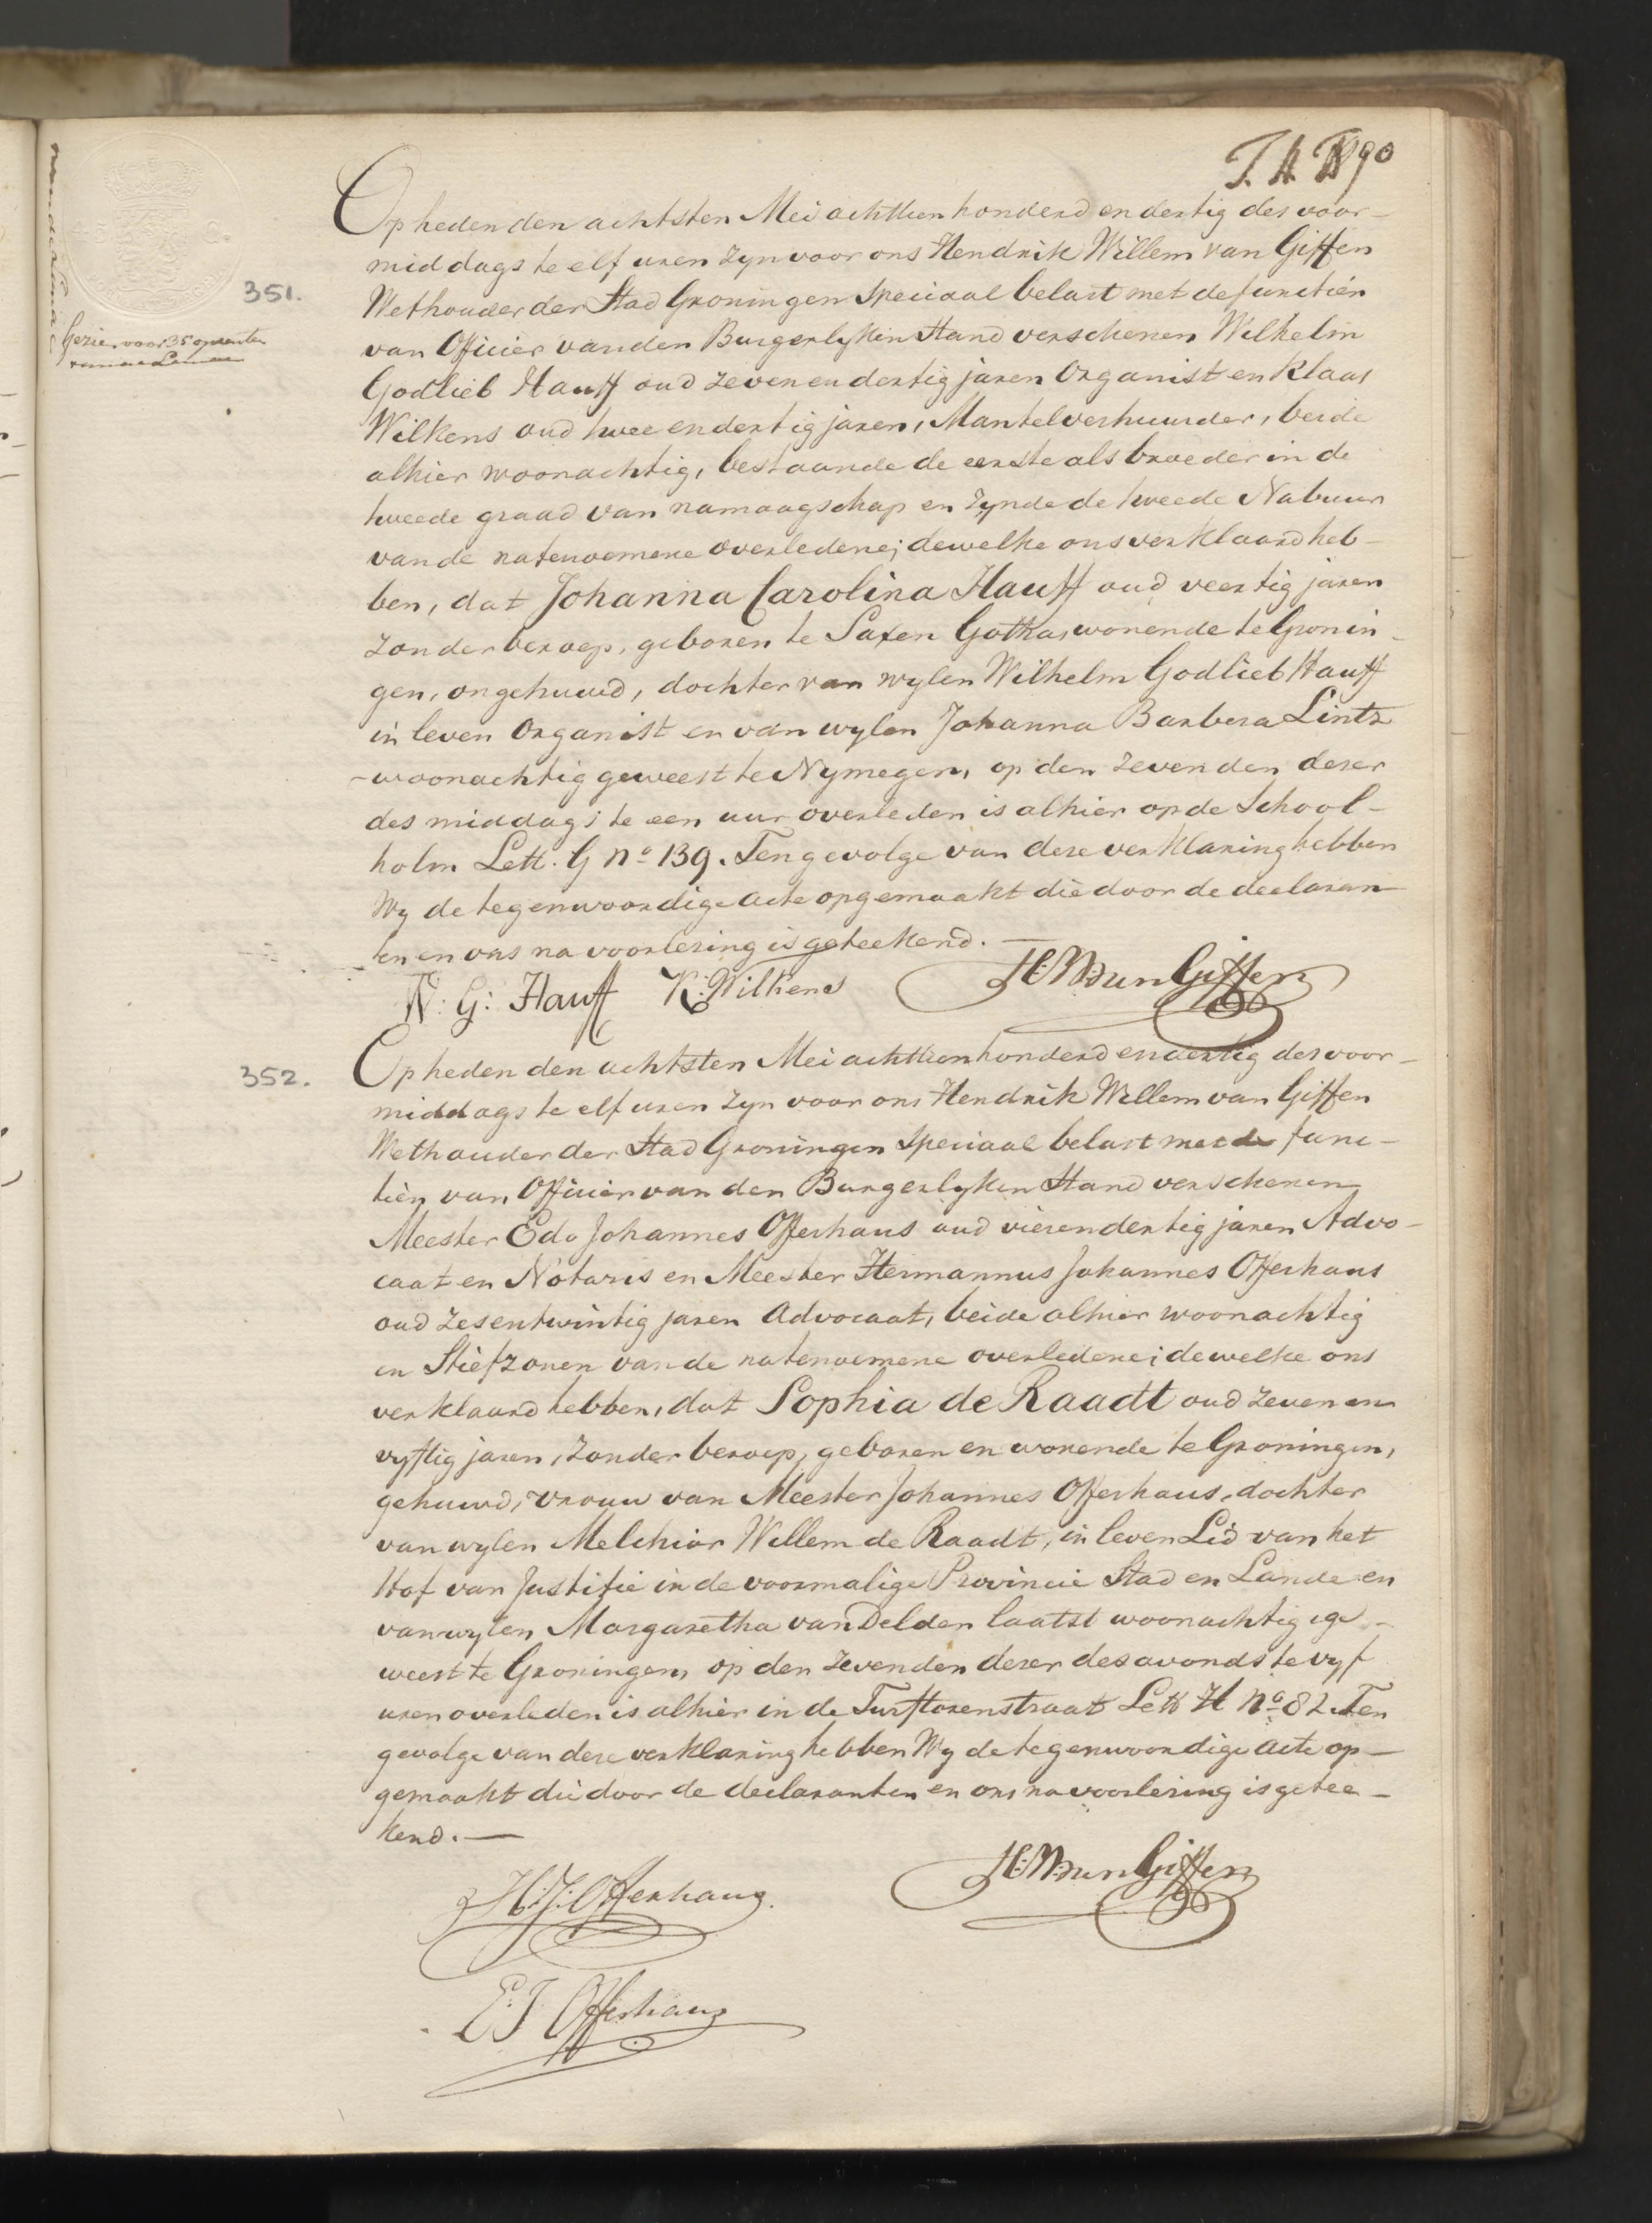 90
351.
Op heden den achtsten Mei achttien honderd en dertig des voor-
middags te elf uren zyn voor ons Hendrik Willem van Giffen
Wethouder der Stad Groningen speciaal belast met de functien
van Officier van den Burgerlyken Stand verschenen Wilhelm
Godlieb Hauff oud zeven en dertig jaren Organist en Klaas
Wilkens oud twee en dertig jaren, Mantelverhuurder, beide
alhier woonachtig, bestaande de eerste als broeder in de
tweede graad van namaagschap en zynde de tweede Nabuur
van de natenoemene overledene; dewelke ons verklaard heb-
ben, dat Johanna Carolina Hauff oud veertig jaren
zonder beroep, geboren te Saxen Gotha, wonende te Gronin-
gen, ongehuwd, dochter van wylen Wilhelm Godlieb Hauff
in leven Organist en van wylen Johanna Barbera Lintz
woonachtig geweest te Nymegen, op den zevenden dezer
des middags te een uur overleden is alhier op de School-
holm Lett. G no 139. Ten gevolge van deze verklaring hebben
Wy de tegenwoordige acte opgemaakt die door de declaran
ten en ons na voorlezing is geteekend. —
W: G: Hauff K: Wilkens HW van Giffen
352.
Op heden den achtsten Mei achttien honderd en dertig des voor-
middags te elf uren zyn voor ons Hendrik Willem van Giffen
Wethouder der Stad Groningen speciaal belast met de func-
tien van Officier van den Burgerlyken Stand verschenen
Meester Edo Johannes Offerhaus oud vierendertig jaren Advo-
caat en Notaris en Meester Hermannus Johannes Offerhaus
oud zesentwintig jaren Advocaat, beide alhier woonachtig
en Stiefzonen van de natenoemene overledene; dewelke ons
verklaard hebben, dat Sophia de Raadt oud zeven en
vyftig jaren, zonder beroep, geboren en wonende te Groningen,
gehuwd, vrouw van Meester Johannes Offerhaus, dochter
van wylen Melchior Willem de Raadt, in leven Lid van het
Hof van Justitie in de voormalige Provincie Stad en Lande en
van wylen Margaretha van Delden laatst woonachtig ge-
weest te Groningen, op den zevenden dezer des avonds te vyf
uren overleden is alhier in de Turftorenstraat Lett H no 82. Ten
gevolge van deze verklaring hebben Wy de tegenwoordige acte op-
gemaakt die door de declaranten en ons na voorlezing is getee-
kend. —
H: J: Offerhaus. HW van Giffen
E: J Offerhaus